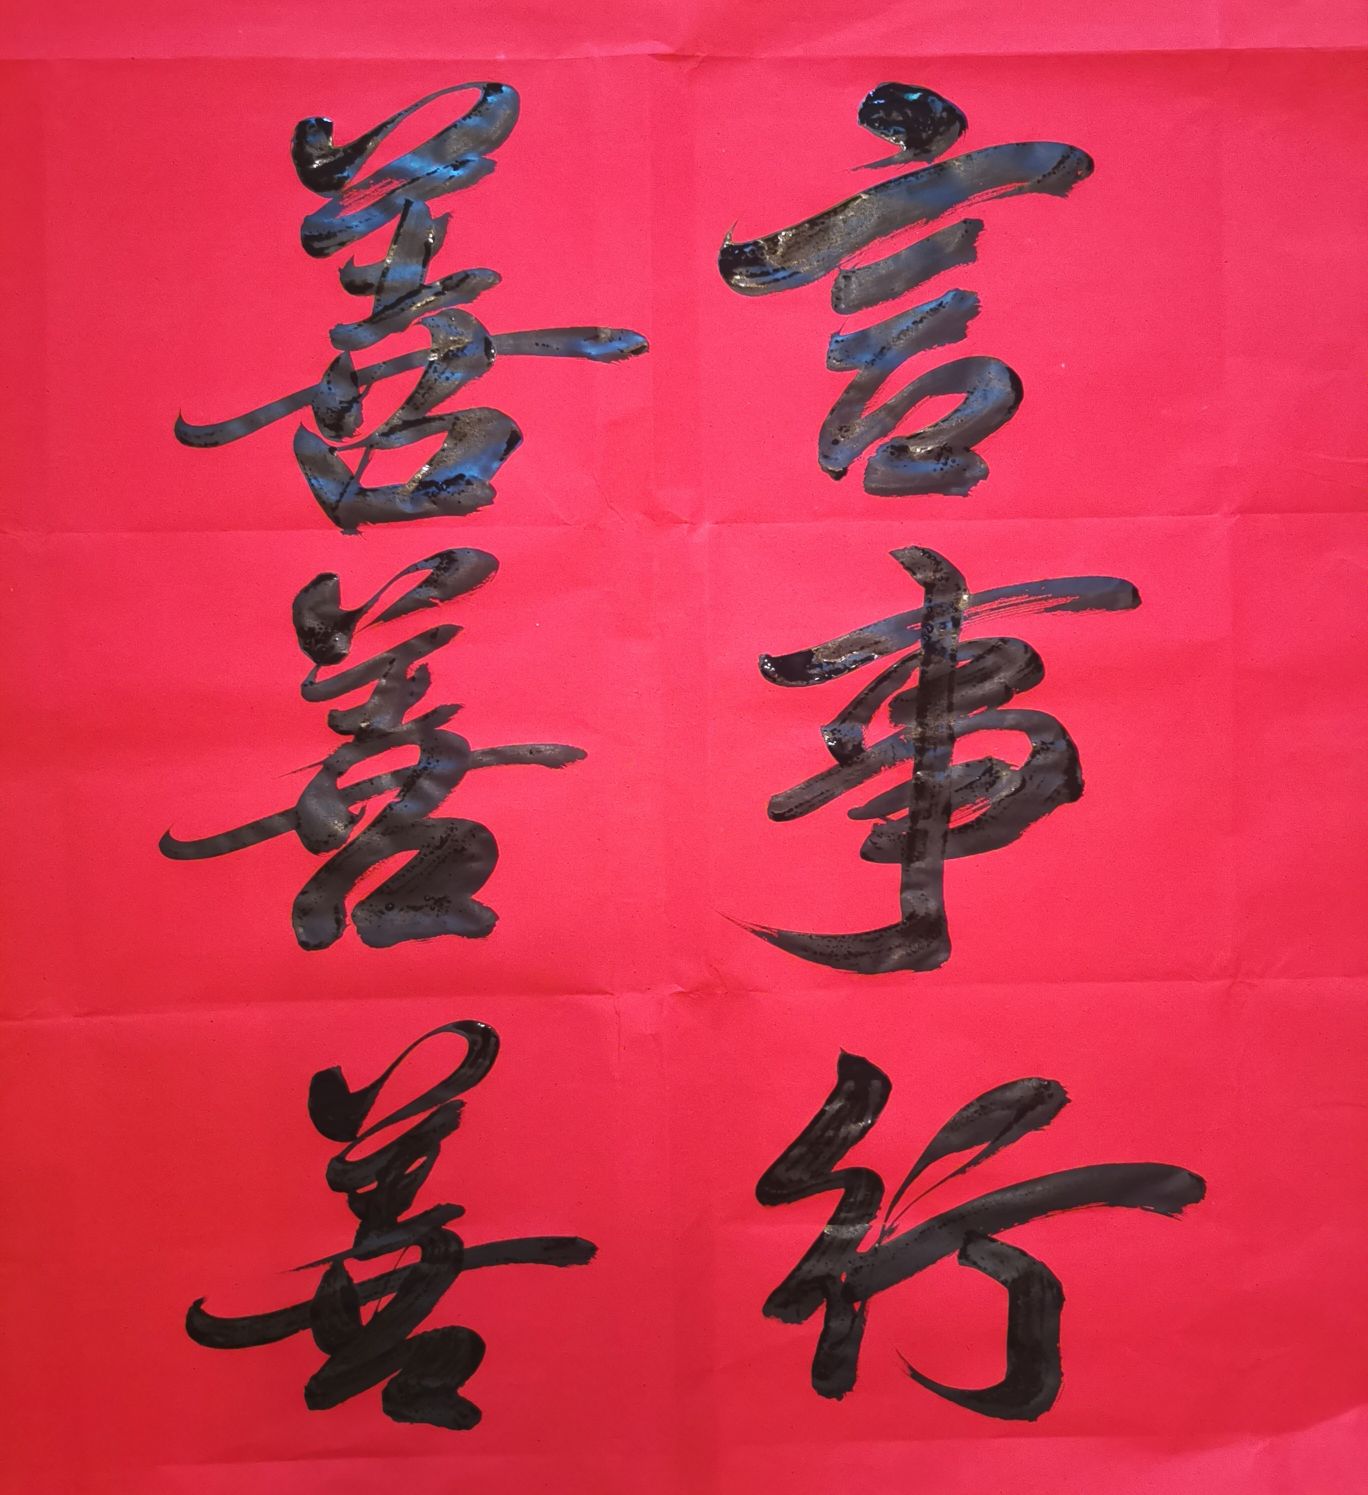 善言
善事
善行